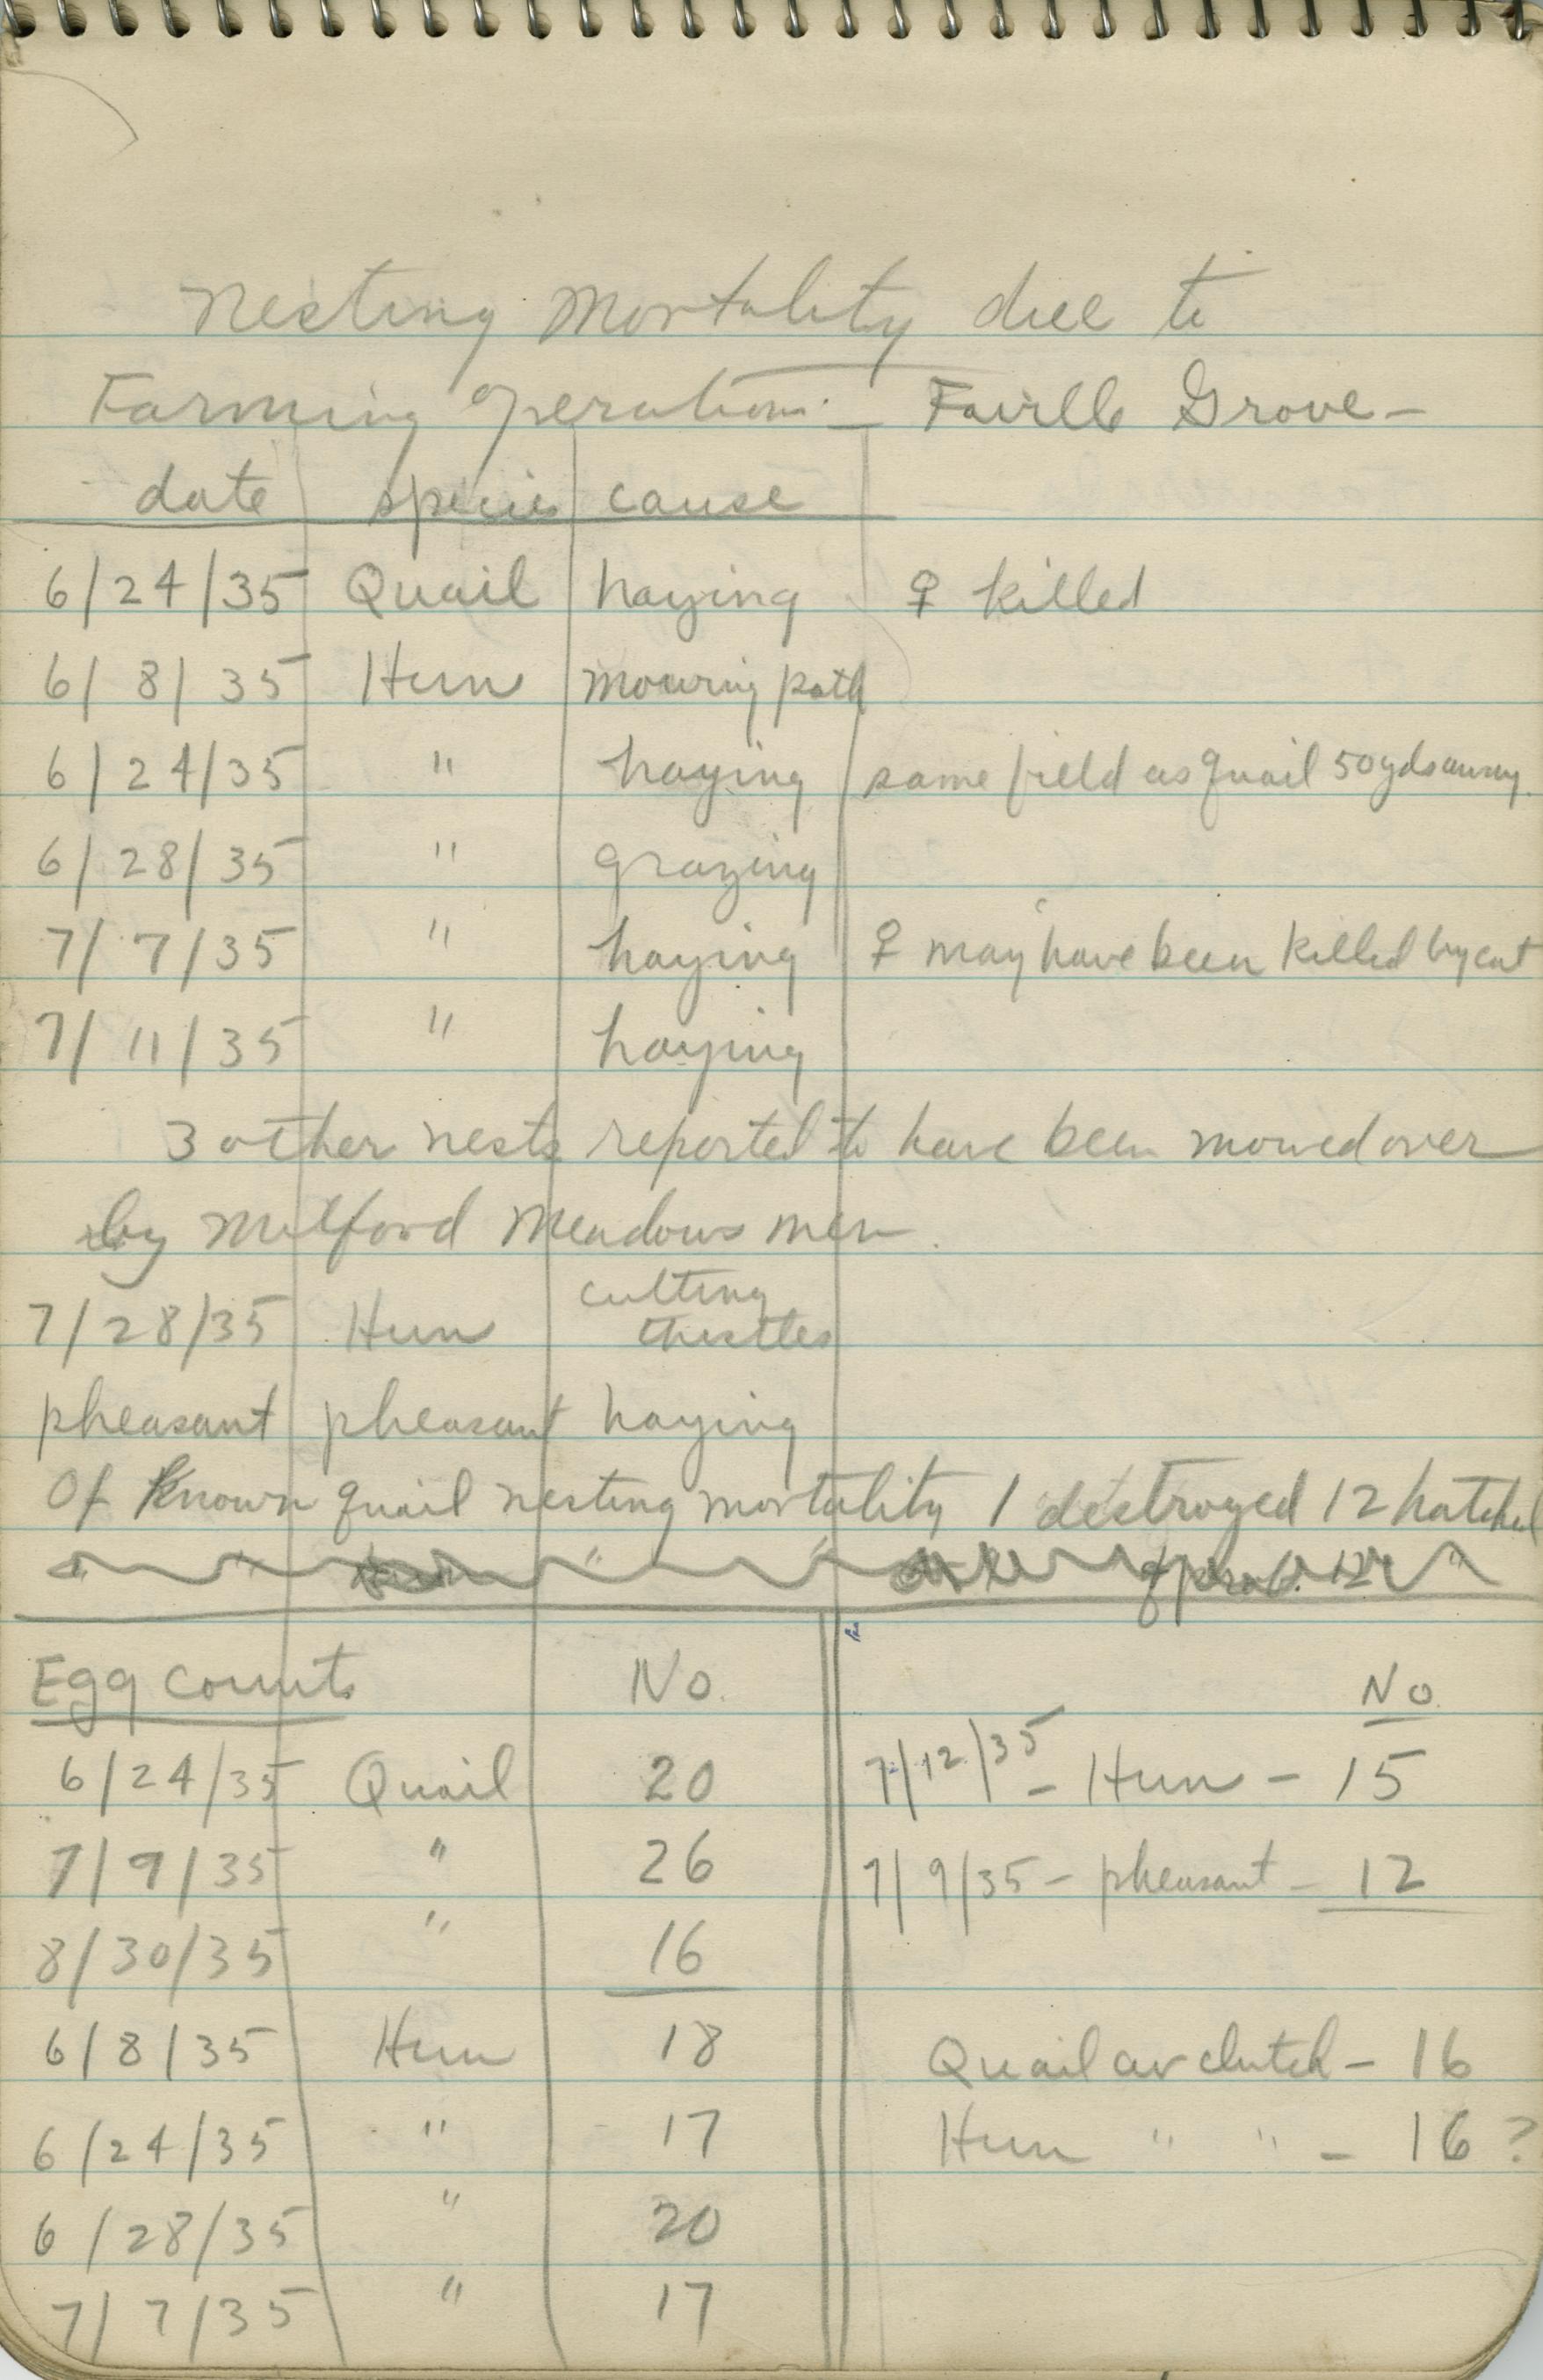 Nesting Mortality due to
Farming Operations — Faville Grove —
date species cause
6/24/35 Quail haying ♀ killed
6/8/35 Hun mowing path
6/24/35 " haying same field as quail 50 yds away.
6/28/35 " grazing
7/7/35 " haying ♀ may have been killed by cat
7/11/35 " haying
3 other nests reported to have been mowed over
by Milford Meadows men.
7/28/35 Hun cutting
thistles
pheasant pheasant haying
Of known quail nesting mortality 1 destroyed 12 hatched
Egg Counts No. No.
6/24/35 Quail 20 7/12/35 – Hun – 15
7/9/35 " 26 7/9/35 – pheasant – 12
8/30/35 " 16
6/8/35 Hun 18 Quail av clutch – 16
6/24/35 " 17 Hun " " – 16 ?
6/28/35 " 20
7/7/35 " 17